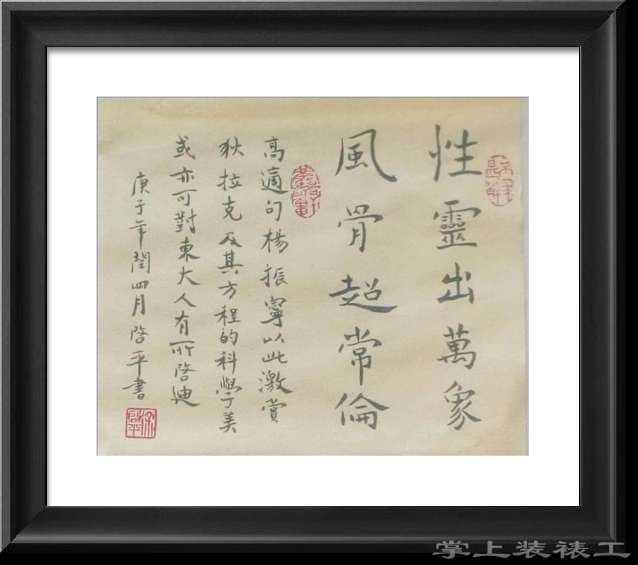 性靈出萬象
風骨超常倫
高適句楊振寧以此激賞
狄拉克及其方程的科學美
或亦可對東大人有所啓迪
庚子年閏四月啓平書
掌上装裱工